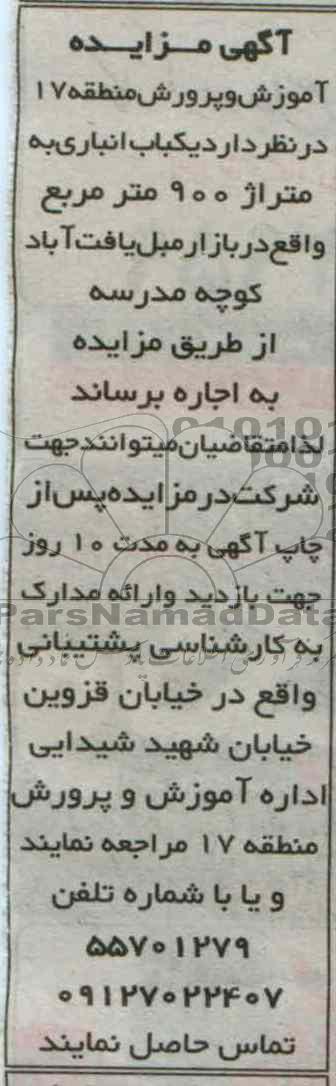 آگهی مــزایــده
آموزش وپرورش منطقه ۱۷
در نظر دارد یکباب انباری به
متراژ ۹۰۰ متر مربع
واقع در بازار مبل یافت آباد
کوچه مدرسه
از طریق مزایده
به اجاره برساند
لذا متقاضیان میتوانند جهت
شرکت در مزایده پس از
چاپ آگهی به مدت ۱۰ روز
جهت بازدید وارائه مدارک
ParsNamadData
به کارشناسی پشتیبانی
واقع در خیابان قزوین
خیابان شهید شیدایی
اداره آموزش و پرورش
منطقه ۱۷ مراجعه نمایند
و یا با شماره تلفن
۵۵۷۰۱۲۷۹
۰۹۱۲۷۰۲۲۴۰۷
تماس حاصل نمایند